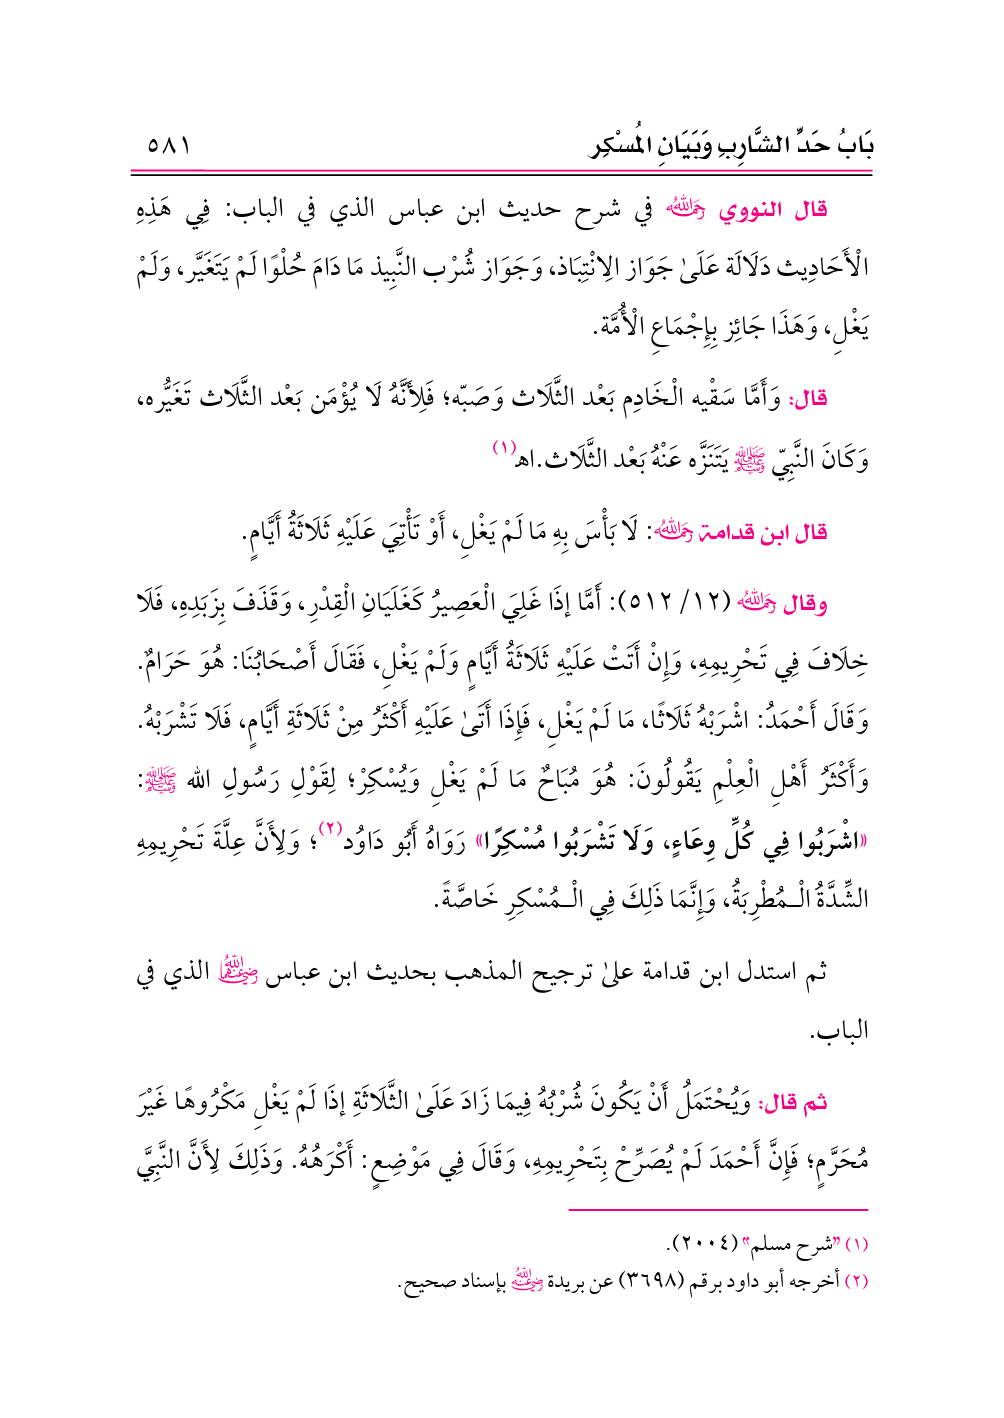 بَابُ حَدِّ الشَّارِبِ وَبَيَانِ الْمُسْكِرِ ٥٨١
قال النووي رحمه الله في شرح حديث ابن عباس الذي في الباب: فِي هَذِهِ
الْأَحَادِيث دَلَالَة عَلَىٰ جَوَاز الِانْتِبَاذ، وَجَوَاز شُرْب النَّبِيذ مَا دَامَ حُلْوًا لَمْ يَتَغَيَّر، وَلَمْ
يَغْلِ، وَهَذَا جَائِز بِإِجْمَاعِ الْأُمَّة.
قال: وَأَمَّا سَقْيه الْخَادِم بَعْد الثَّلَاث وَصَبّه؛ فَلِأَنَّهُ لَا يُؤْمَن بَعْد الثَّلَاث تَغَيُّره،
وَكَانَ النَّبِيّ ﷺ يَتَنَزَّه عَنْهُ بَعْد الثَّلَاث.اهـ(١)
قال ابن قدامة رحمه الله: لَا بَأْسَ بِهِ مَا لَمْ يَغْلِ، أَوْ تَأْتِيَ عَلَيْهِ ثَلَاثَةُ أَيَّامٍ.
وقال رحمه الله (١٢/ ٥١٢): أَمَّا إذَا غَلِيَ الْعَصِيرُ كَغَلَيَانِ الْقِدْرِ، وَقَذَفَ بِزَبَدِهِ، فَلَا
خِلَافَ فِي تَحْرِيمِهِ، وَإِنْ أَتَتْ عَلَيْهِ ثَلَاثَةُ أَيَّامٍ وَلَمْ يَغْلِ، فَقَالَ أَصْحَابُنَا: هُوَ حَرَامٌ.
وَقَالَ أَحْمَدُ: اشْرَبْهُ ثَلَاثًا، مَا لَمْ يَغْلِ، فَإِذَا أَتَىٰ عَلَيْهِ أَكْثَرُ مِنْ ثَلَاثَةِ أَيَّامٍ، فَلَا تَشْرَبْهُ.
وَأَكْثَرُ أَهْلِ الْعِلْمِ يَقُولُونَ: هُوَ مُبَاحٌ مَا لَمْ يَغْلِ وَيُسْكِرْ؛ لِقَوْلِ رَسُولِ الله ﷺ:
«اشْرَبُوا فِي كُلِّ وِعَاءٍ، وَلَا تَشْرَبُوا مُسْكِرًا» رَوَاهُ أَبُو دَاوُد(٢)؛ وَلِأَنَّ عِلَّةَ تَحْرِيمِهِ
الشِّدَّةُ الْـمُطْرِبَةُ، وَإِنَّمَا ذَلِكَ فِي الْـمُسْكِرِ خَاصَّةً.
ثم استدل ابن قدامة علىٰ ترجيح المذهب بحديث ابن عباس رضي الله عنهما الذي في
الباب.
ثم قال: وَيُحْتَمَلُ أَنْ يَكُونَ شُرْبُهُ فِيمَا زَادَ عَلَىٰ الثَّلَاثَةِ إذَا لَمْ يَغْلِ مَكْرُوهًا غَيْرَ
مُحَرَّمٍ؛ فَإِنَّ أَحْمَدَ لَمْ يُصَرِّحْ بِتَحْرِيمِهِ، وَقَالَ فِي مَوْضِعٍ: أَكْرَهُهُ. وَذَلِكَ لِأَنَّ النَّبِيَّ
(١) "شرح مسلم" (٢٠٠٤).
(٢) أخرجه أبو داود برقم (٣٦٩٨) عن بريدة رضي الله عنه بإسناد صحيح.